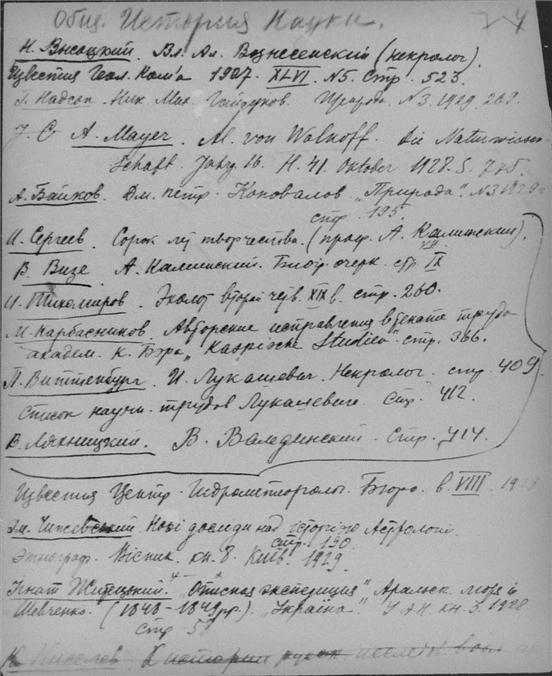 Общ. История Науки. 4
Н. Высоцкий. Вл. Ал. Вознесенский (некролог).
Известия Геол. Ком'а 1927. XLVI. N5. Стр. 523.
Г. Надсон. Ник. Мих. Гайдуков. Природа. N3. 1929. 269.
J. C. A. Mayer. Al. von Walkoff. Die Naturwissen-
schaft. Jahrg. 16. H. 41. Oktober 1928. S.
А. Байков. Дм. Петр. Коновалов. „Природа“ N3 1929
стр. 195.
И. Сергеев. Сорок лет творчества. (проф. А. Каминский).
В. Визе. А. Каминский. Биогр. очерк. стр. IX
И. Тихомиров. Эхолот второй четв. XIX в. стр. 260.
М. Карбасников. Авторские исправления в тексте труда
академ. К. Бэра „Kaspische Studien“ стр. 366.
П. Виттенбург. И. Лукашевич. Некролог. стр. 409.
Список научн. трудов Лукашевича. Стр. 412.
В. Ляхницкий. В. Валединский. Стр. 414.
Известия Центр. Гидрометеоролог. Бюро. в. VIII. 1928
Нові досліди над історією Астрології.
стр. 190.
Этнограф. Вісник. кн. 8. Київ. 1929.
Гнат Житецкий. „Описная экспедиция“ Аральск. моря и
Шевченко. (1848-1849 гг.). „Україна“. У.А.Н. кн. 3. 1928
стр. 5
Н. Киселев К истории